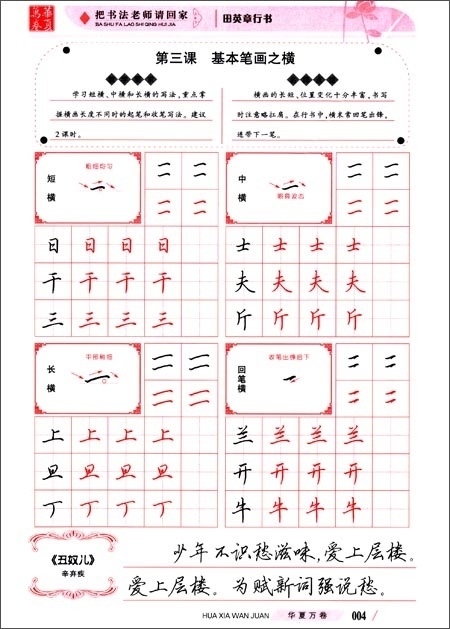 把书法老师请回家
BA SHU FA LAO SHI QING HUI JIA
田英章行书
第三课 基本笔画之横
学习短横、中横和长横的写法,重点掌
握横画长度不同时的起笔和收笔写法。建议
2课时。
横画的长短、位置变化十分丰富,书写
时注意略扛肩。在行书中,横末常回笔出锋,
连带下一笔。
短横
粗细均匀
一 二 二 二 二
日 日 日 日
干 干 干 干
三 三 三 三
中横
一 二 二 二 二
士 士 士 士
夫 夫 夫 夫
斤 斤 斤 斤
长横
一 二 二 二 二
上 上 上 上
旦 旦 旦 旦
丁 丁 丁 丁
回笔横
一 二 二 二 二
兰 兰 兰 兰
开 开 开 开
牛 牛 牛 牛
《丑奴儿》
辛弃疾
少年不识愁滋味,爱上层楼。
爱上层楼。为赋新词强说愁。
HUA XIA WAN JUAN
华夏万卷
004